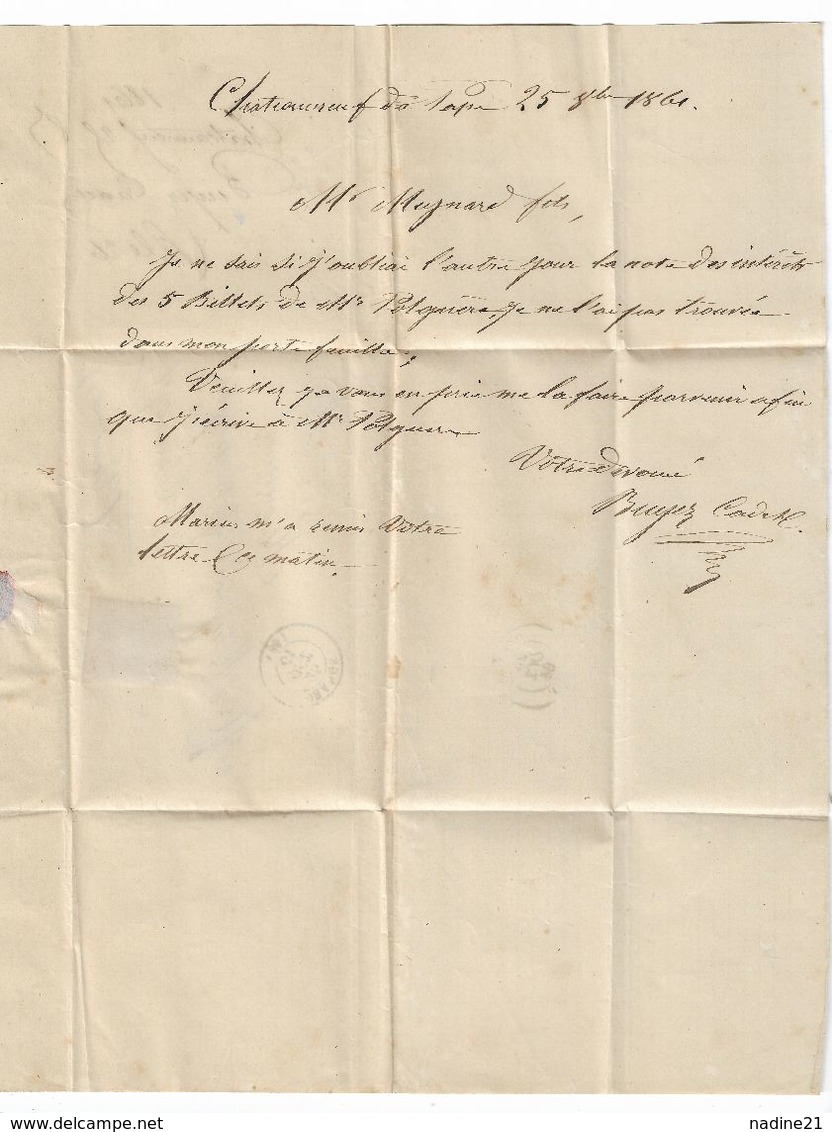 Chateauneuf du Pape 25 8bre 1861.
Mr Meynard fils,
Je ne sais si j'oubliai l'autre jour la note des intérêts
des 5 Billets de Mr Polguère, je ne l'ai pas trouvée
dans mon porte feuille,
Veuillez je vous en prie me la faire parvenir afin
que j'écrive à Mr Polguere
Votre dévoué
Cadet
Marius m'a remis Votre
lettre Ce matin.
nadine21